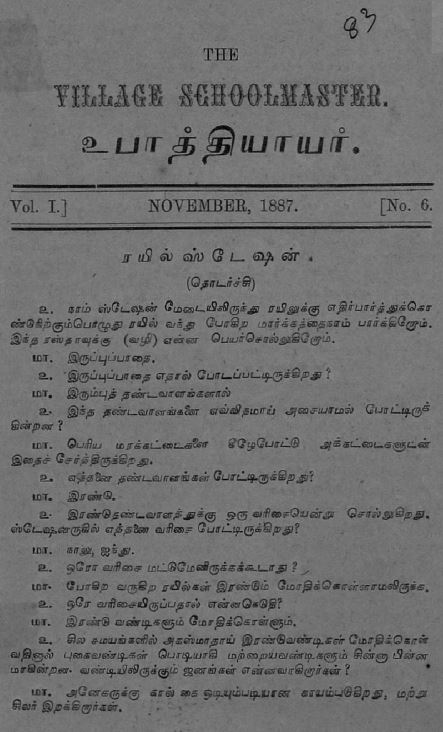 83
THE
VILLAGE SCHOOLMASTER.
உபாத்தியாயர்.
Vol. I.] NOVEMBER, 1887. [No. 6.
ரயில் ஸ்டேஷன்.
(தொடர்ச்சி)
உ. நாம் ஸ்டேஷன் மேடையிலிருந்து ரயிலுக்கு எதிர்பார்த்துக்கொ
ண்டுநிற்கும்பொழுது ரயில் வந்து போகிற மார்க்கத்தைநாம் பார்க்கிறோம்.
இந்த ரஸ்தாவுக்கு (வழி) என்ன பெயர்சொல்லுகிறோம்.
மா. இருப்புப்பாதை.
உ. இருப்புப்பாதை எதால் போடப்பட்டிருக்கிறது?
மா. இரும்புத் தண்டவாளங்களால்
உ. இந்த தண்டவாளங்களை எவ்விதமாய் அசையாமல் போட்டிருக்
கின்றன?
மா. பெரிய மரக்கட்டைகளை கீழேபோட்டு அக்கட்டைகளுடன்
இதைச் சேர்த்திருக்கிறது.
உ. எத்தனை தண்டவாளங்கள் போட்டிருக்கிறது?
மா. இரண்டு.
உ. இரண்டுதண்டவாளத்துக்கு ஒரு வரிசையென்று சொல்லுகிறது.
ஸ்டேஷனருகில் எத்தனை வரிசை போட்டிருக்கிறது?
மா. நாலு, ஐந்து.
உ. ஒரே வரிசை மட்டுமேனிருக்கக்கூடாது?
மா. போகிற வருகிற ரயில்கள் இரண்டும் மோதிக்கொள்ளாமலிருக்க.
உ. ஒரே வரிசையிருப்பதால் என்னகெடுதி?
மா. இரண்டு வண்டிகளும் மோதிக்கொள்ளும்.
உ. சில சமயங்களில் அகஸ்மாதாய் இரண்டுவண்டிகள் மோதிக்கொள்
வதினால் புகைவண்டிகள் பொடியாகி மற்றையவண்டிகளும் சின்னா பின்ன
மாகின்றன. வண்டியிலிருக்கும் ஜனங்கள் என்னவாகிறார்கள்?
மா. அனேகருக்கு கால் கை ஒடியும்படியான காயம்படுகிறது, மற்று
சிலர் இறக்கிறார்கள்.